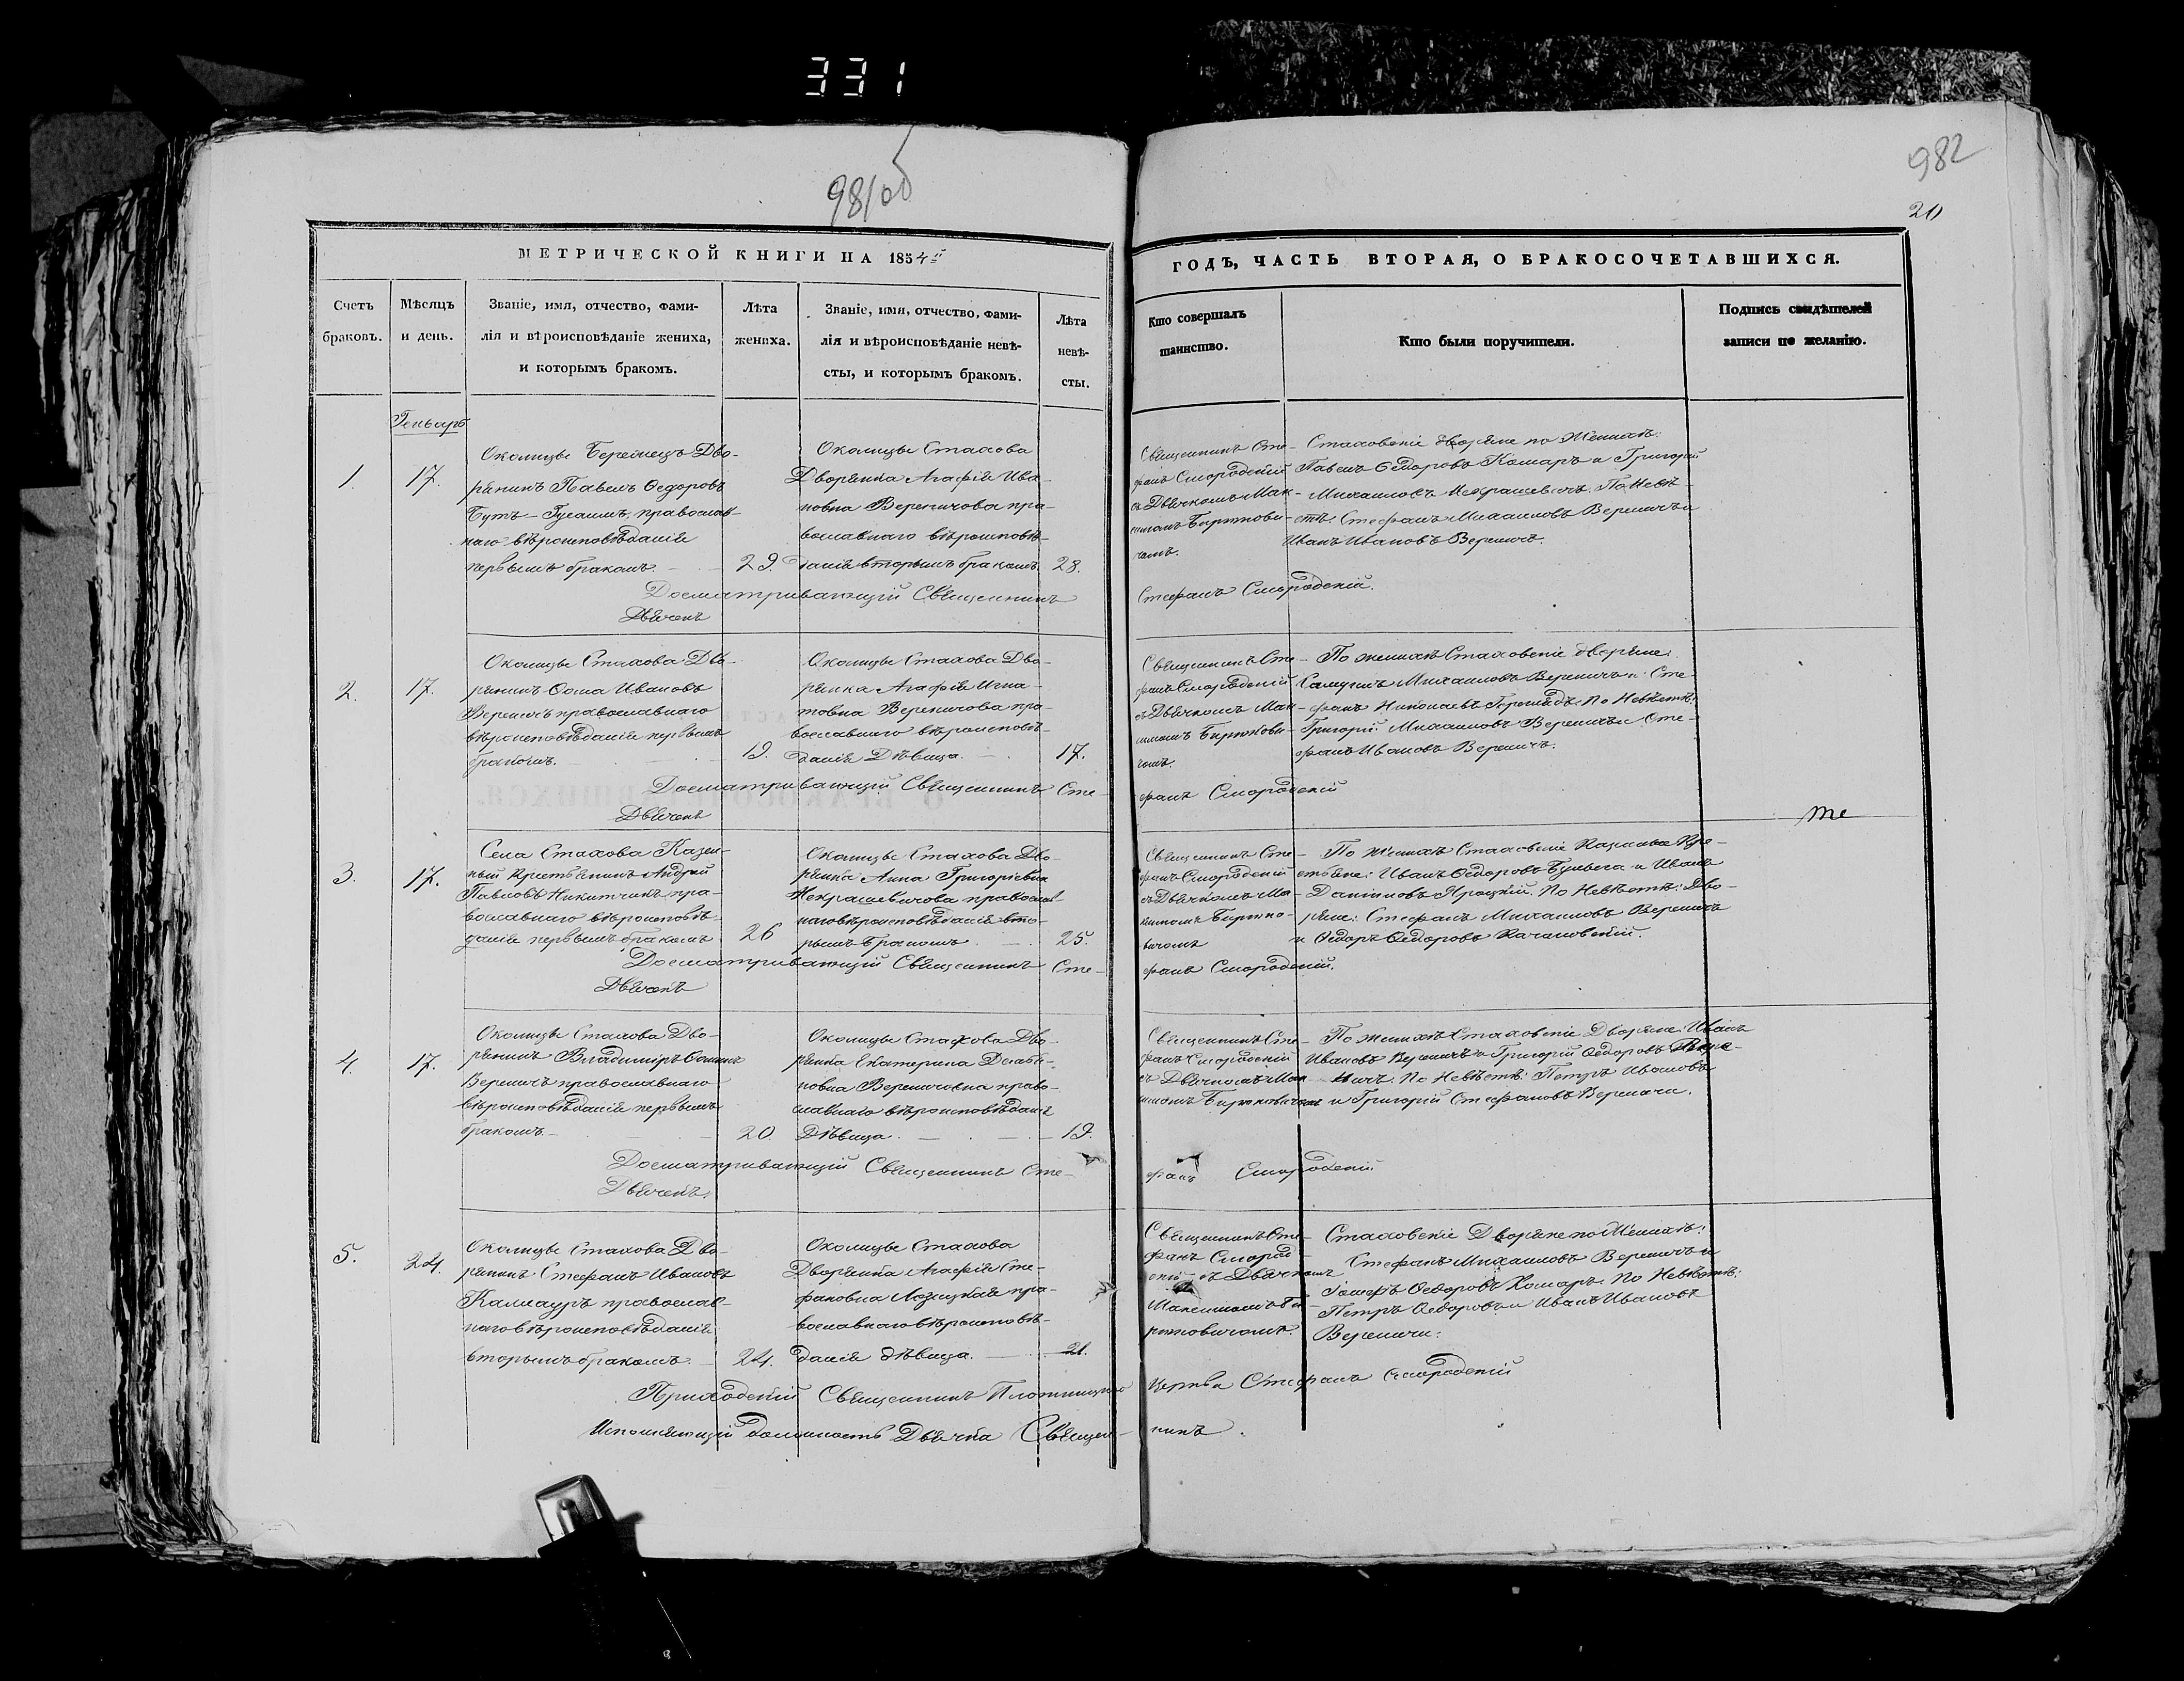 331
981об
982
20
МЕТРИЧЕСКОЙ КНИГИ НА 1854й
ГОДЪ, ЧАСТЬ ВТОРАЯ, О БРАКОСОЧЕТАВШИХСЯ.
Счетъ
браковъ.
Мѣсяцъ
и день.
Званіе, имя, отчество, фами-
лія и вѣроисповѣданіе жениха,
и которымъ бракомъ.
Лѣта
жениха.
Званіе, имя, отчество, фами-
лія и вѣроисповѣданіе невѣ-
сты, и которымъ бракомъ.
Лѣта
невѣ-
сты.
Кто совершалъ
таинство.
Кто были поручители.
Подпись свидѣтелей
записи по желанію.
Генварь
1.
17.
Околицы Бережецъ Дво-
рянинъ Павелъ Ѳедоровъ
Бутъ-Гусаимъ, православ-
наго вѣроисповѣданія
первымъ бракомъ.
29.
Околицы Стахова
Дворянка Агафія Ива-
новна Вереничова пра-
вославнаго вѣроисповѣ-
данія вторымъ бракомъ.
28.
Священникъ Сте-
фанъ Смородскій
съ Дьячкомъ Мак-
симомъ Бирюкови-
чемъ.
Стаховскіе дворяне по Женихѣ:
Павелъ Ѳедоровъ Комаръ и Григорій
Михаиловъ Некрашевичъ. По Невѣ-
стѣ: Стефанъ Михаиловъ Вереничъ и
Иванъ Ивановъ Вереничъ.
Досматривающій Священникъ Стефанъ Смородскій.
Дьячекъ
2.
17.
Околицы Стахова Дво-
рянинъ Ѳома Ивановъ
Вереничъ православнаго
вѣроисповѣданія первымъ
бракомъ.
19.
Околицы Стахова Дво-
рянка Агафія Игна-
товна Вереничова пра-
вославнаго вѣроисповѣ-
данія Дѣвица.
17.
Священникъ Сте-
фанъ Смородскій
съ Дьячкомъ Мак-
симомъ Бирюкови-
чемъ.
По женихѣ Стаховскіе дворяне:
Самуилъ Михаиловъ Вереничъ и Сте-
фанъ Николаевъ Герогнядъ. По Невѣстѣ:
Григорій Михаиловъ Вереничъ и Сте-
фанъ Ивановъ Вереничъ.
Досматривающій Священникъ Стефанъ Смородскій
Дьячекъ
те
3.
17.
Села Стахова Казен-
ный Крестьянинъ Андрей
Павловъ Никитчикъ пра-
вославнаго вѣроисповѣ-
данія первымъ бракомъ
26
Околицы Стахова Дво-
рянка Анна Григоріевна
Некрашевичова православ-
наго вѣроисповѣданія вто-
рымъ бракомъ.
25.
Священникъ Сте-
фанъ Смородскій
съ Дьячкомъ Ма-
ксимомъ Бирюко-
вичемъ
По женихѣ Стаховскіе Казенные Кре-
стьяне: Иванъ Ѳедоровъ Бульвега и Иванъ
Даніиловъ Яроцкій. По Невѣстѣ: Дво-
ряне: Стефанъ Михаиловъ Вереничъ
и Ѳедоръ Ѳедоровъ Качановскій.
Досматривающій Священникъ Стефанъ Смородскій.
Дьячекъ
4.
17.
Околицы Стахова Дво-
рянинъ Владиміръ Ѳоминъ
Вереничъ православнаго
вѣроисповѣданія первымъ
бракомъ.
20.
Околицы Стахова Дво-
рянка Екатерина Демья-
новна Вереничовна право-
славнаго вѣроисповѣданія
Дѣвица.
19.
Священникъ Сте-
фанъ Смородскій
съ Дьячкомъ Мак-
симомъ Бирюковичемъ
По женихѣ Стаховскіе Дворяне: Иванъ
Ивановъ Вереничъ и Григорій Ѳедоровъ Вере-
ничъ. По Невѣстѣ: Петръ Ивановъ
и Григорій Стефановъ Вереничи.
Досматривающій Священникъ Стефанъ Смородскій
Дьячекъ.
5.
24.
Околицы Стахова Дво-
рянинъ Стефанъ Ивановъ
Калауръ православ-
наго вѣроисповѣданія
вторымъ бракомъ.
24.
Околицы Стахова
Дворянка Агафія Сте-
фановна Лозицкая пра-
вославнаго вѣроисповѣ-
данія дѣвица.
21.
Священникъ Сте-
фанъ Смород-
скій съ Дьячкомъ
Максимомъ Би-
рюковичемъ.
Стаховскіе Дворяне по Женихѣ:
Стефанъ Михаиловъ Вереничъ и
Іосифъ Ѳедоровъ Комаръ. По Невѣстѣ:
Петръ Ѳедоровъ и Иванъ Ивановъ
Вереничи.
Приходскій Священникъ Плотницкой Церкви Стефанъ Смородскій
Исполняющій должность Дьячка Священникъ.